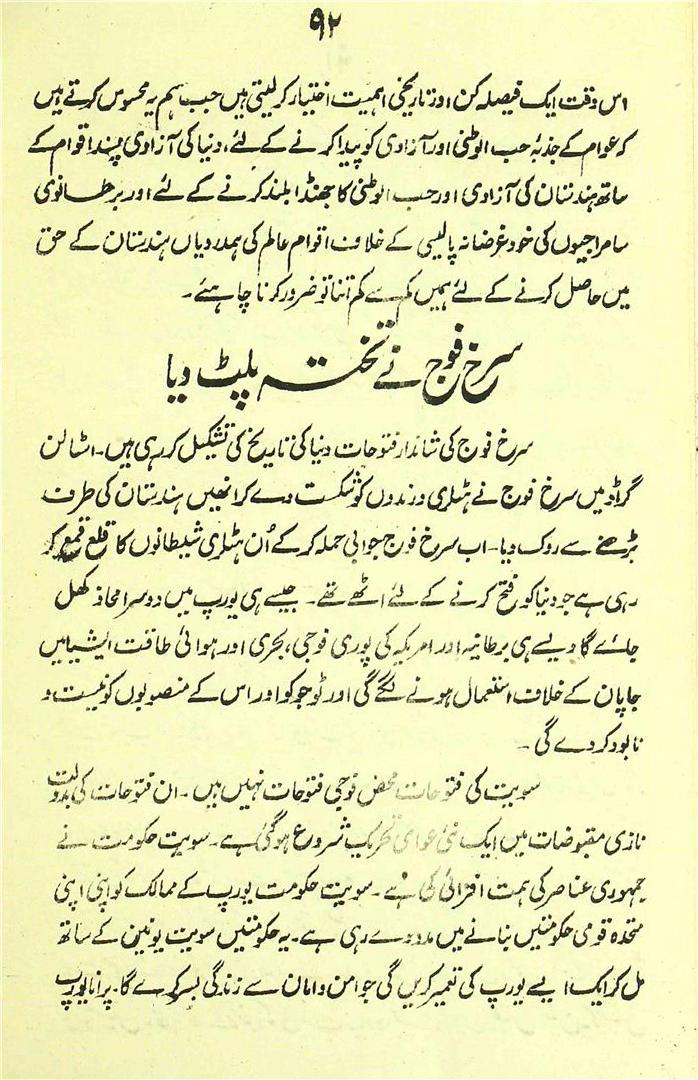 ۹۲
اس وقت ایک فیصلہ کن اور تاریخی اہمیت اختیار کرلیتی ہیں جب ہم یہ محسوس کرتے ہیں
کہ عوام کے جذبۂ حب الوطنی اور آزادی کو پیدا کرنے کے لئے، دنیا کی آزادی پسند اقوام کے
ساتھ ہندستان کی آزادی اور حب الوطنی کا جھنڈا بلند کرنے کے لئے اور برطانوی
سامراجیوں کی خود غرضانہ پالیسی کے خلاف اقوام عالم کی ہمدردیاں ہندستان کے حق
میں حاصل کرنے کے لئے ہمیں کم سے کم اتنا تو ضرور کرنا چاہئے۔
سرخ فوج نے تختہ پلٹ دیا
سرخ فوج کی شاندار فتوحات دنیا کی تاریخ کی تشکیل کررہی ہیں۔ اسٹالن
گراڈ میں سرخ فوج نے ہٹلری درندوں کو شکست دے کر انھیں ہندستان کی طرف
بڑھنے سے روک دیا۔ اب سرخ فوج جوابی حملہ کرکے اُن ہٹلری شیطانوں کا قلع قمع کر
رہی ہے جو دنیا کو فتح کرنے کے لئے اٹھے تھے۔ جیسے ہی یورپ میں دوسرا محاذ کھل
جائے گا ویسے ہی برطانیہ اور امریکہ کی پوری فوجی، بحری اور ہوائی طاقت ایشیا میں
جاپان کے خلاف استعمال ہونے لگے گی اور ٹوجو کو اور اس کے منصوبوں کو نیست و
نابود کردے گی۔
سویت کی فتوحات محض فوجی فتوحات نہیں ہیں۔ ان فتوحات کی بدولت
نازی مقبوضات میں ایک نئی عوامی تحریک شروع ہوگئی ہے۔ سویت حکومت نے
جمہوری عناصر کی ہمت افزائی کی ہے۔ سویت حکومت یورپ کے ممالک کو اپنی اپنی
متحدہ قومی حکومتیں بنانے میں مدد دے رہی ہے۔ یہ حکومتیں سویت یونین کے ساتھ
مل کر ایک ایسے یورپ کی تعمیر کریں گی جو امن و امان سے زندگی بسر کرے گا۔ پرانا یورپ